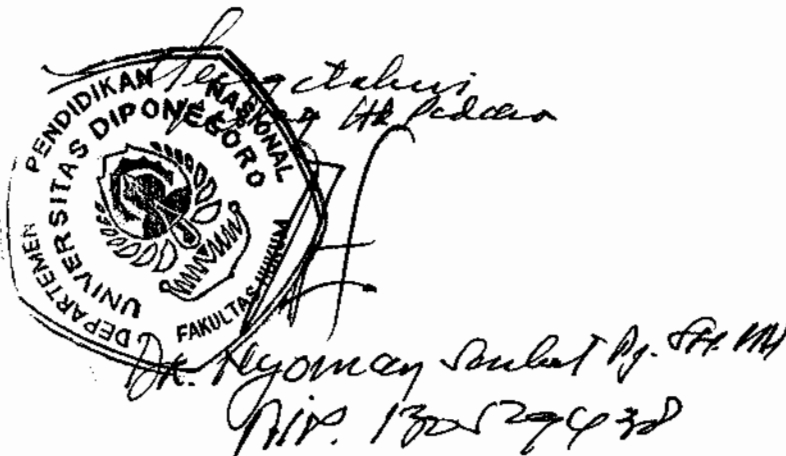 Mengetahui
Hk Pidana
DEPARTEMEN PENDIDIKAN NASIONAL
UNIVERSITAS DIPONEGORO
FAKULTAS HUKUM
Dr. Nyoman Sarikat Pj. SH. MH
NIP. 130529438